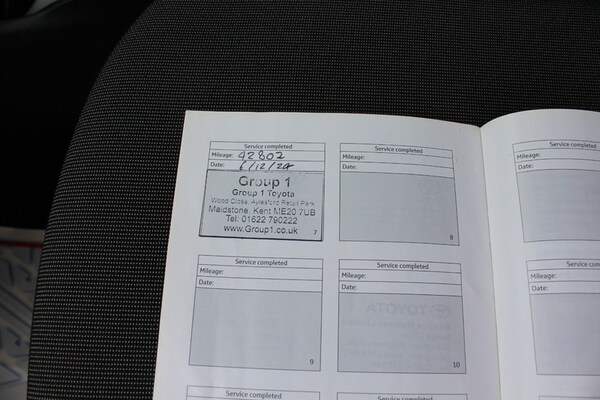 Service completed
Mileage: 92802
Date: 6/12/24
Group 1
Group 1 Toyota
Wood Close, Aylesford Retail Park
Maidstone, Kent ME20 7UB
Tel: 01622 790222
www.Group1.co.uk
7
Service completed
Mileage:
Date:
8
Service completed
Mileage:
Date:
Service completed
Mileage:
Date:
9
Service completed
Mileage:
Date:
10
Mileage:
Date:
Service completed
Service completed